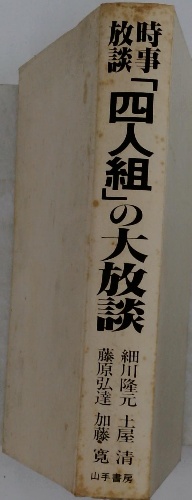 時事
放談
「四人組」の大放談
細川隆元 土屋清
藤原弘達 加藤寛
山手書房